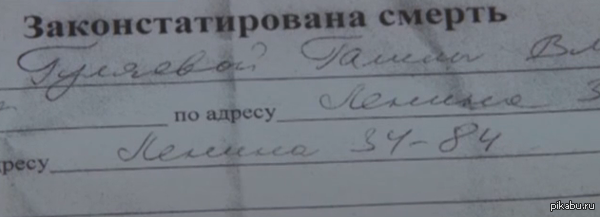 Законстатирована смерть
Гуляевой Галины Вл
по адресу Ленина 3
ресу Ленина 34-84
pikabu.ru